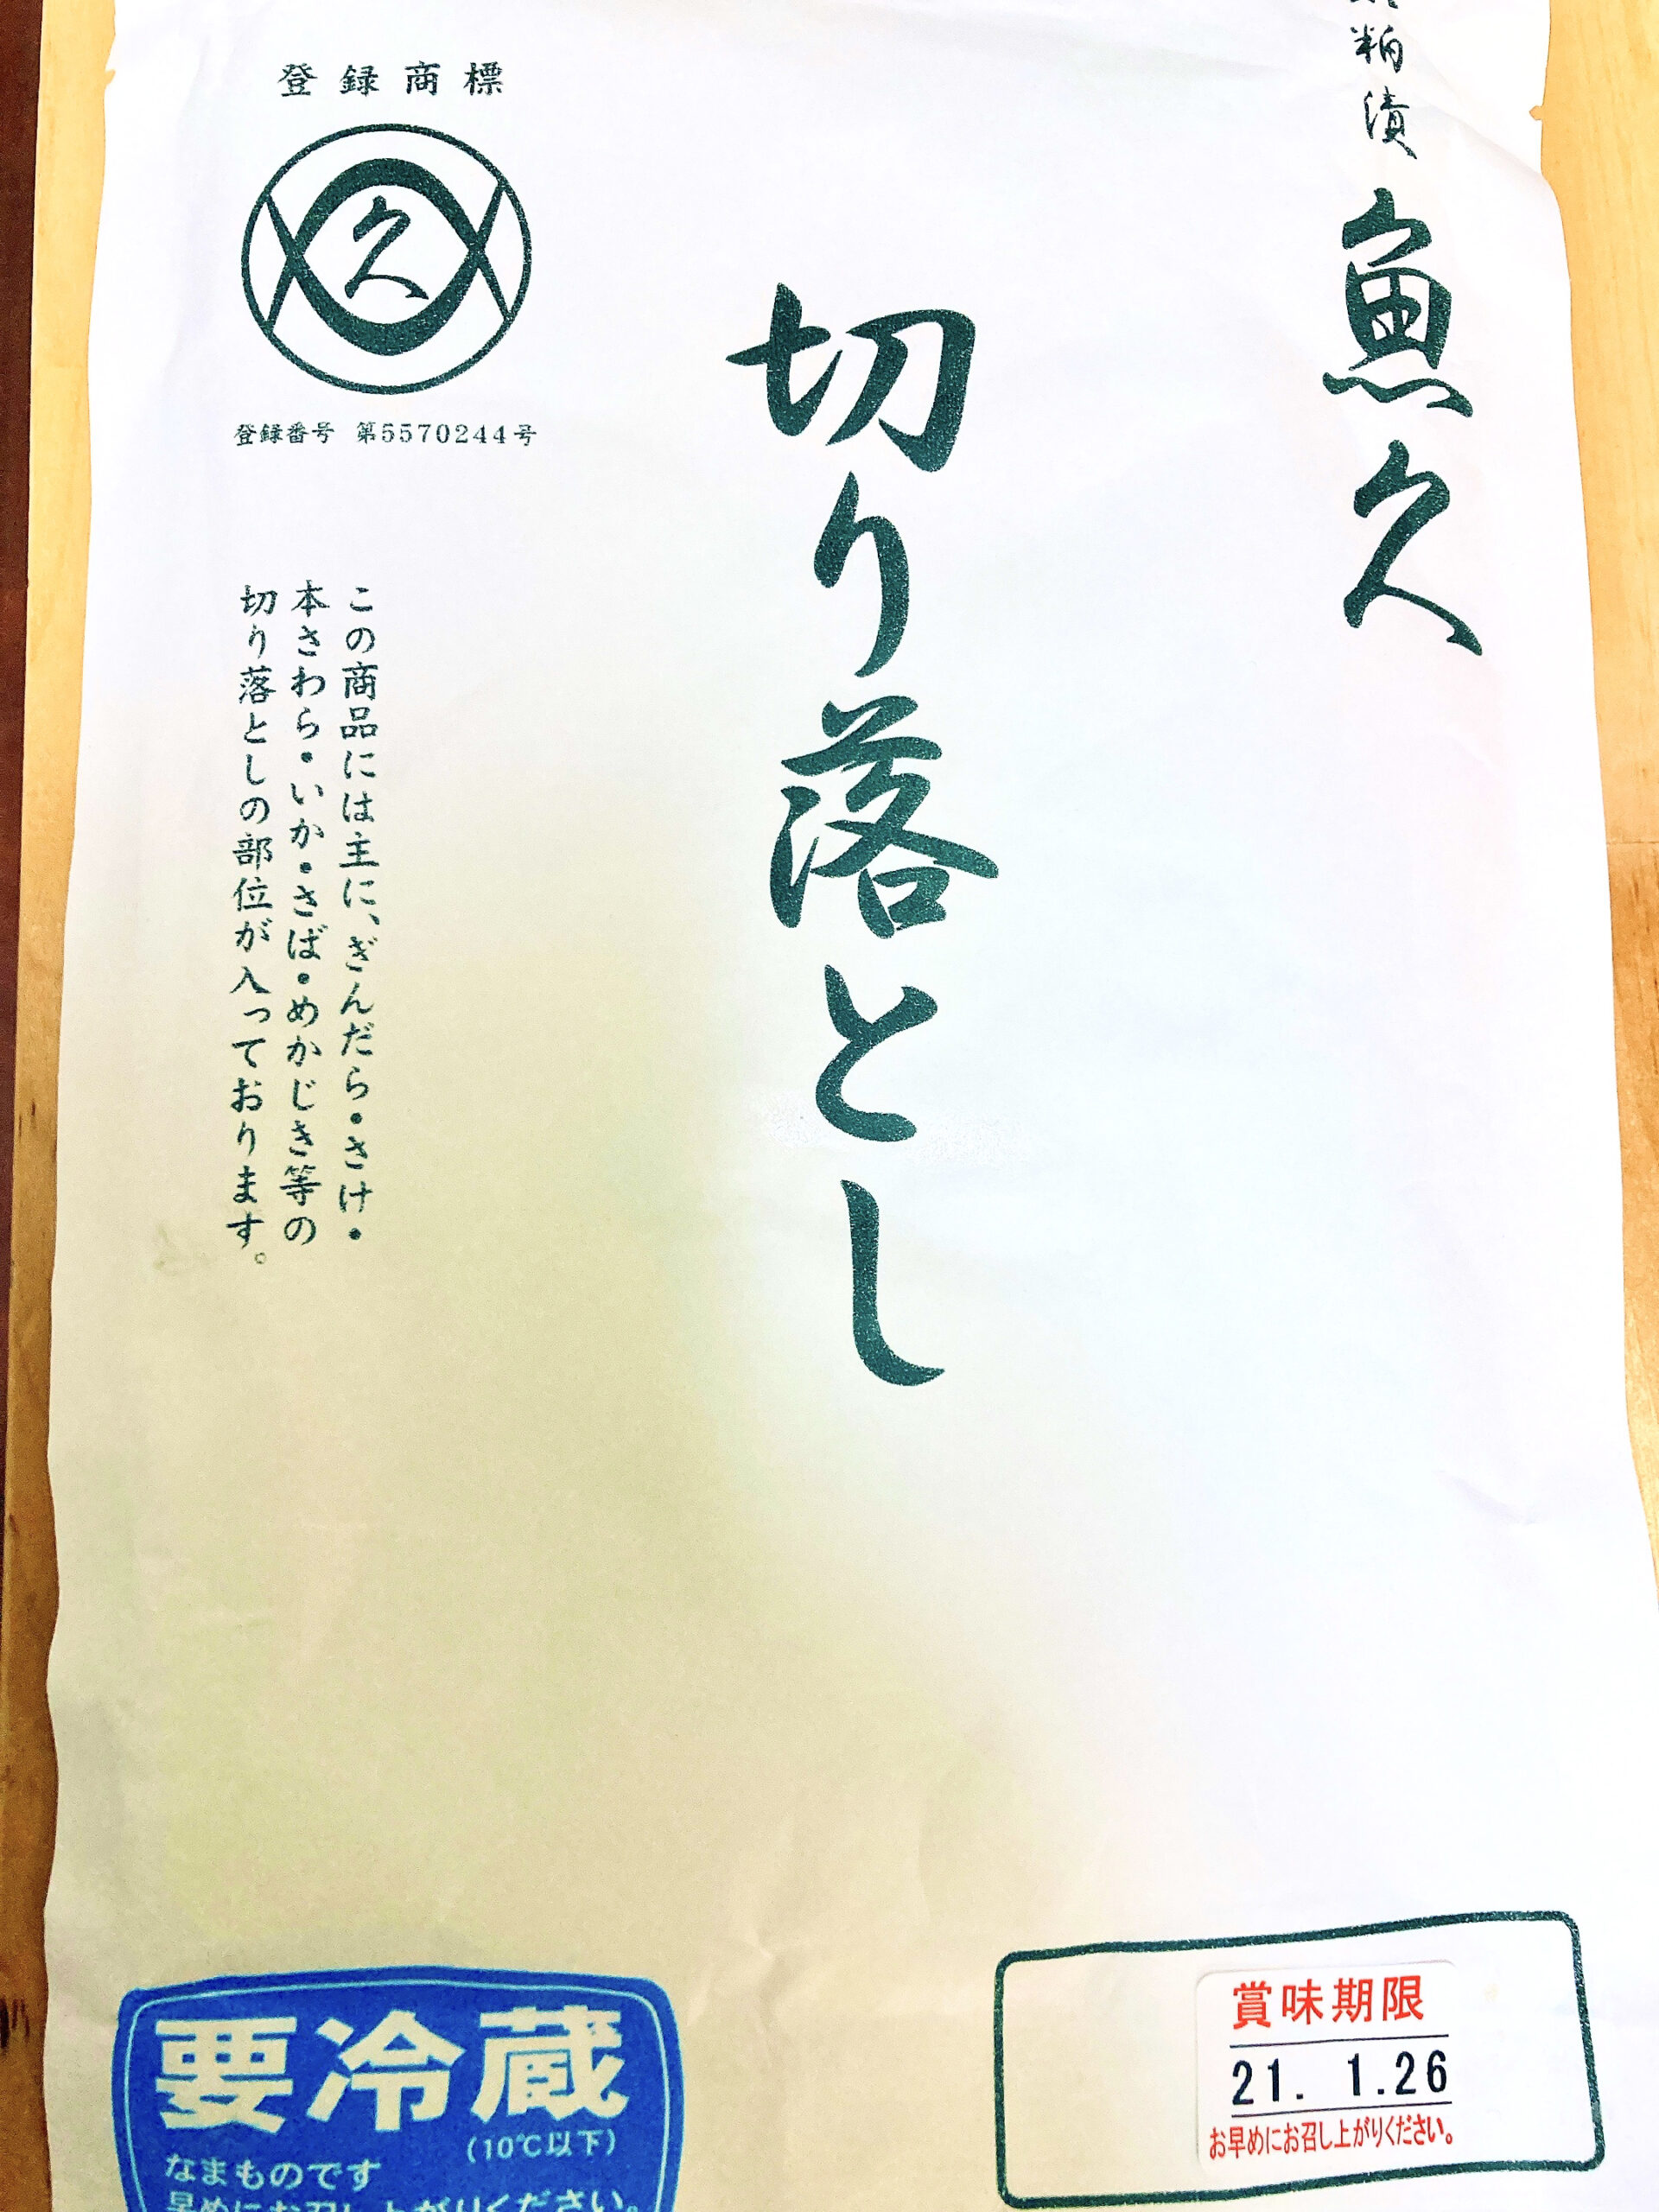 粕漬 魚久
切り落とし
登録商標
久
登録番号 第5570244号
この商品には主に、ぎんだら・さけ・
本さわら・いか・さば・めかじき等の
切り落としの部位が入っております。
要冷蔵
(10℃以下)
なまものです
早めにお召し上がりください。
賞味期限
21. 1.26
お早めにお召し上がりください。